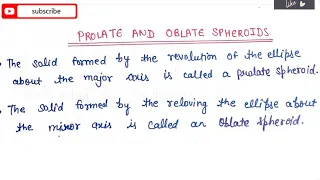 subscribe
like
PROLATE AND OBLATE SPHEROIDS
• The solid formed by the revolution of the ellipse
about the major axis is called a prolate spheroid.
• The solid formed by the reloving the ellipse about
the minor axis is called an oblate spheroid.